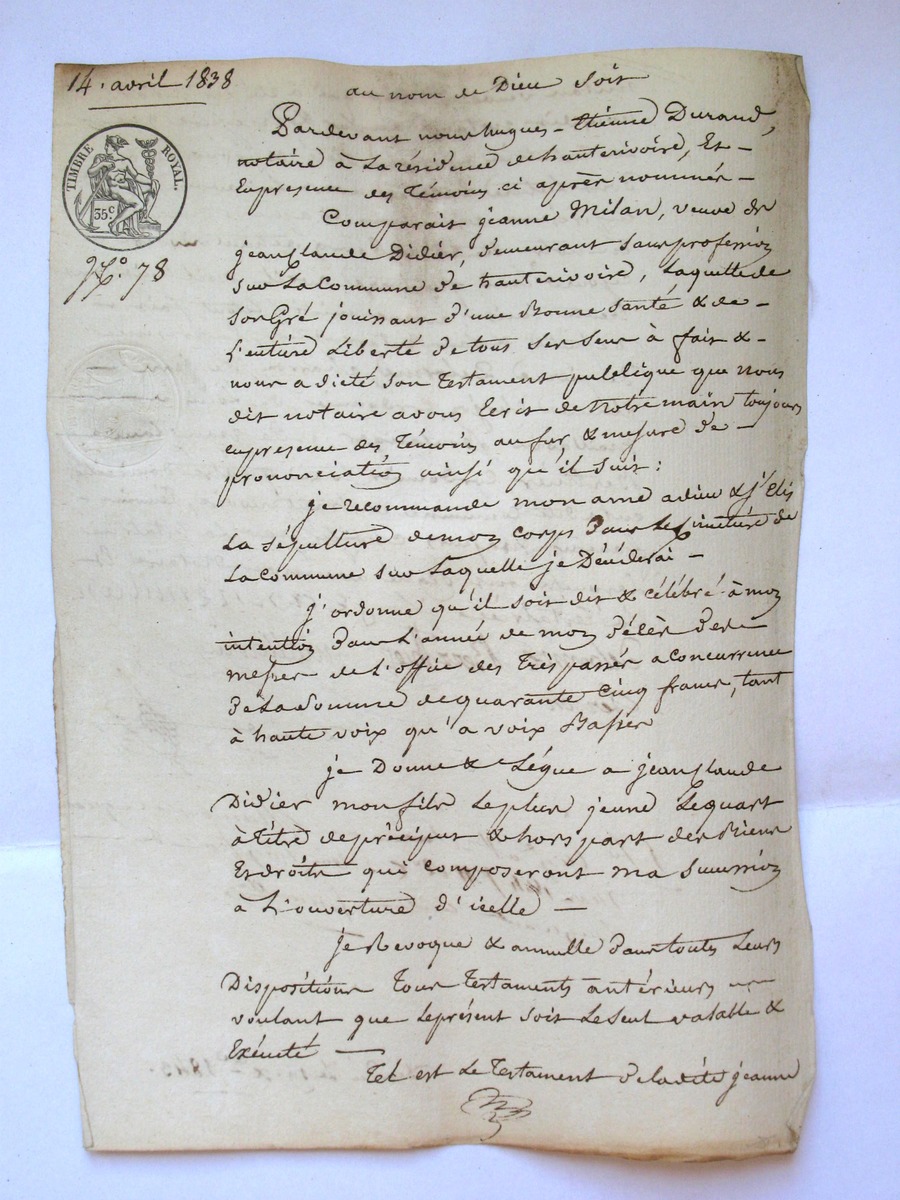 14. avril 1838
au nom de Dieu soit
TIMBRE ROYAL.
35c
N.º 78
Pardevant nous hugues-Etienne Durand,
notaire à La résidence de hauterivoire, Et-
En presence des Témoins ci après nommés-
Comparait jeanne Milan, veuve de
jean Claude Didier, demeurant sans profession
sur La Commune de hauterivoire, Laquelle de
son Gré jouissant d'une Bonne santé & de-
L'entière Liberté de tous ses sens à fait &-
nous a dicté son Testament publique que nous
dit notaire avons Ecrit de Notre main toujours
en presence des Témoins au fur & mesure de-
prononciation ainsi qu'il suit:
je recommande mon ame a dieu & j'Elis
La sépulture de mon corps Dans Le Cimetière de
La commune sur Laquelle je Décéderai-
j'ordonne qu'il soit dit & célébré à mon
intention Dans L'année de mon Délès Des
messes de L'office des Trépassés a concurrence
de La Somme de quarante Cinq francs, tant
à haute voix qu'a voix Basse
je Donne & Légue a jean Claude
Didier mon fils Le plus jeune Le quart
à titre de préciput & hors part des Biens
Et droits qui composeront ma succession
à L'ouverture d'icelle —
je Revoque & annulle Dans toutes Leurs
Dispositions Tous Testaments antérieurs
voulant que Le présent soit Le seul valable &
Exécuté —
Tel est Le Testament de ladite jeanne